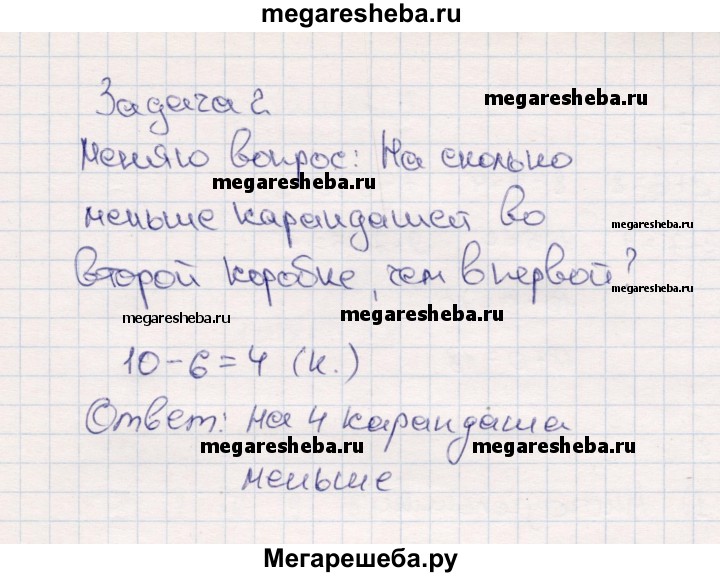 megaresheba.ru
Задача 2.
megaresheba.ru
Меняю вопрос: На сколько
megaresheba.ru
меньше карандашей во
megaresheba.ru
второй коробке, чем в первой?
megaresheba.ru
megaresheba.ru
megaresheba.ru
10-6=4 (к.)
Ответ: на 4 карандаша
megaresheba.ru
megaresheba.ru
меньше
Мегарешеба.ру